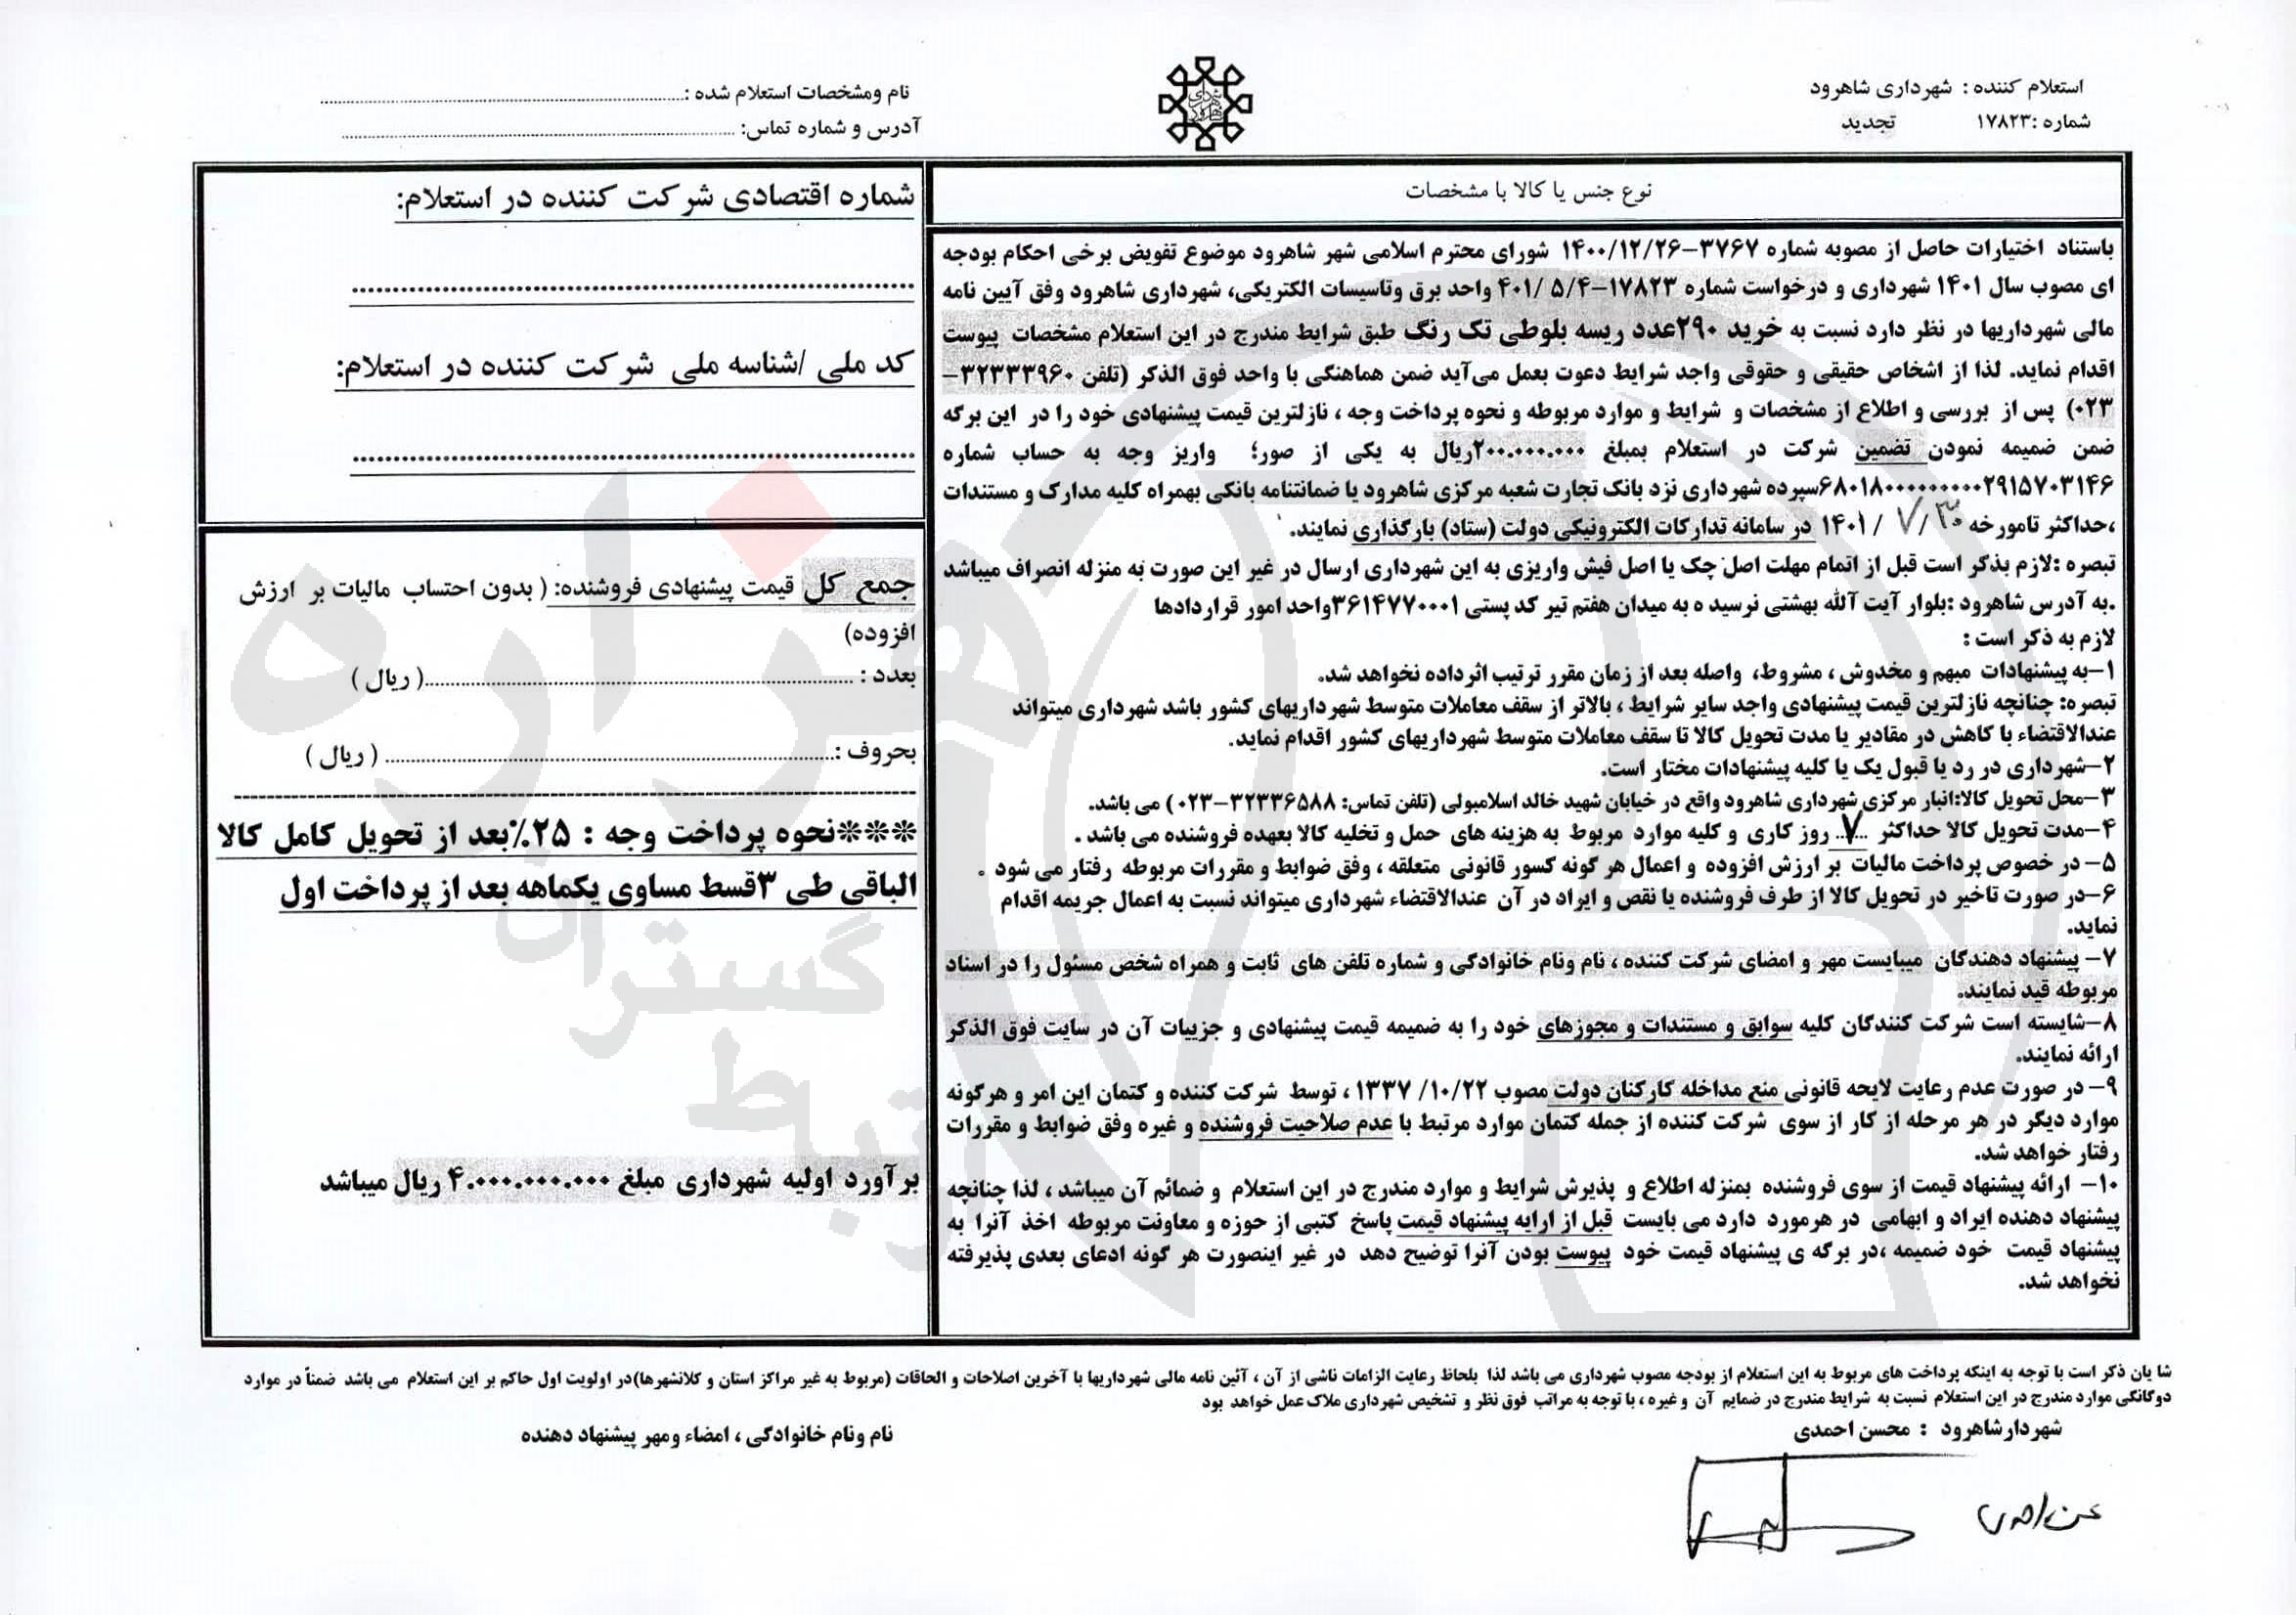 استعلام کننده : شهرداری شاهرود
شماره :۱۷۸۲۳ تجدید
نام ومشخصات استعلام شده :
آدرس و شماره تماس:
نوع جنس یا کالا با مشخصات
باستناد اختیارات حاصل از مصوبه شماره ۳۷۶۷-۱۴۰۰/۱۲/۲۶ شورای محترم اسلامی شهر شاهرود موضوع تفویض برخی احکام بودجه
ای مصوب سال ۱۴۰۱ شهرداری و درخواست شماره ۱۷۸۲۳-۴۰۱/ ۵/۴ واحد برق وتاسیسات الکتریکی، شهرداری شاهرود وفق آیین نامه
مالی شهرداریها در نظر دارد نسبت به خرید ۲۹۰عدد ریسه بلوطی تک رنگ طبق شرایط مندرج در این استعلام مشخصات پیوست
اقدام نماید. لذا از اشخاص حقیقی و حقوقی واجد شرایط دعوت بعمل می‌آید ضمن هماهنگی با واحد فوق الذکر (تلفن ۳۲۳۳۳۹۶۰-
۰۲۳) پس از بررسی و اطلاع از مشخصات و شرایط و موارد مربوطه و نحوه پرداخت وجه ، نازلترین قیمت پیشنهادی خود را در این برگه
ضمن ضمیمه نمودن تضمین شرکت در استعلام بمبلغ ۲۰۰.۰۰۰.۰۰۰ریال به یکی از صور؛ واریز وجه به حساب شماره
۶۸۰۱۸۰۰۰۰۰۰۰۰۰۰۲۹۱۵۷۰۳۱۴۶سپرده شهرداری نزد بانک تجارت شعبه مرکزی شاهرود یا ضمانتنامه بانکی بهمراه کلیه مدارک و مستندات
،حداکثر تامورخه ۳۰/ ۷/ ۱۴۰۱ در سامانه تدارکات الکترونیکی دولت (ستاد) بارگذاری نمایند.
تبصره :لازم بذکر است قبل از اتمام مهلت اصل چک یا اصل فیش واریزی به این شهرداری ارسال در غیر این صورت به منزله انصراف میباشد
.به آدرس شاهرود :بلوار آیت آلله بهشتی نرسید ه به میدان هفتم تیر کد پستی ۳۶۱۴۷۷۰۰۰۱واحد امور قراردادها
لازم به ذکر است :
۱-به پیشنهادات مبهم و مخدوش ، مشروط، واصله بعد از زمان مقرر ترتیب اثرداده نخواهد شد.
تبصره: چنانچه نازلترین قیمت پیشنهادی واجد سایر شرایط ، بالاتر از سقف معاملات متوسط شهرداریهای کشور باشد شهرداری میتواند
عندالاقتضاء با کاهش در مقادیر یا مدت تحویل کالا تا سقف معاملات متوسط شهرداریهای کشور اقدام نماید.
۲-شهرداری در رد یا قبول یک یا کلیه پیشنهادات مختار است.
۳-محل تحویل کالا:انبار مرکزی شهرداری شاهرود واقع در خیابان شهید خالد اسلامبولی (تلفن تماس: ۳۲۳۳۶۵۸۸-۰۲۳) می باشد.
۴-مدت تحویل کالا حداکثر ۷ روز کاری و کلیه موارد مربوط به هزینه های حمل و تخلیه کالا بعهده فروشنده می باشد .
۵- در خصوص پرداخت مالیات بر ارزش افزوده و اعمال هر گونه کسور قانونی متعلقه ، وفق ضوابط و مقررات مربوطه رفتار می شود .
۶-در صورت تاخیر در تحویل کالا از طرف فروشنده یا نقص و ایراد در آن عندالاقتضاء شهرداری میتواند نسبت به اعمال جریمه اقدام
نماید.
۷- پیشنهاد دهندگان میبایست مهر و امضای شرکت کننده ، نام ونام خانوادگی و شماره تلفن های ثابت و همراه شخص مسئول را در اسناد
مربوطه قید نمایند.
۸-شایسته است شرکت کنندگان کلیه سوابق و مستندات و مجوزهای خود را به ضمیمه قیمت پیشنهادی و جزییات آن در سایت فوق الذکر
ارائه نمایند.
۹- در صورت عدم رعایت لایحه قانونی منع مداخله کارکنان دولت مصوب ۱۰/۲۲/ ۱۳۳۷ ، توسط شرکت کننده و کتمان این امر و هرگونه
موارد دیگر در هر مرحله از کار از سوی شرکت کننده از جمله کتمان موارد مرتبط با عدم صلاحیت فروشنده و غیره وفق ضوابط و مقررات
رفتار خواهد شد.
۱۰- ارائه پیشنهاد قیمت از سوی فروشنده بمنزله اطلاع و پذیرش شرایط و موارد مندرج در این استعلام و ضمائم آن میباشد ، لذا چنانچه
پیشنهاد دهنده ایراد و ابهامی در هرمورد دارد می بایست قبل از ارایه پیشنهاد قیمت پاسخ کتبی از حوزه و معاونت مربوطه اخذ آنرا به
پیشنهاد قیمت خود ضمیمه ،در برگه ی پیشنهاد قیمت خود پیوست بودن آنرا توضیح دهد در غیر اینصورت هر گونه ادعای بعدی پذیرفته
نخواهد شد.
شماره اقتصادی شرکت کننده در استعلام:
کد ملی /شناسه ملی شرکت کننده در استعلام:
جمع کل قیمت پیشنهادی فروشنده: ( بدون احتساب مالیات بر ارزش
افزوده)
بعدد : ( ریال )
بحروف : ( ریال )
***نحوه پرداخت وجه : ۲۵٪بعد از تحویل کامل کالا
الباقی طی ۳قسط مساوی یکماهه بعد از پرداخت اول
برآورد اولیه شهرداری مبلغ ۴.۰۰۰.۰۰۰.۰۰۰ ریال میباشد
شا یان ذکر است با توجه به اینکه پرداخت های مربوط به این استعلام از بودجه مصوب شهرداری می باشد لذا بلحاظ رعایت الزامات ناشی از آن ، آئین نامه مالی شهرداریها با آخرین اصلاحات و الحاقات (مربوط به غیر مراکز استان و کلانشهرها)در اولویت اول حاکم بر این استعلام می باشد ضمناً در موارد
دوگانگی موارد مندرج در این استعلام نسبت به شرایط مندرج در ضمایم آن و غیره ، با توجه به مراتب فوق نظر و تشخیص شهرداری ملاک عمل خواهد بود
شهردارشاهرود : محسن احمدی
نام ونام خانوادگی ، امضاء ومهر پیشنهاد دهنده
هزاره
گستران
ارتباط